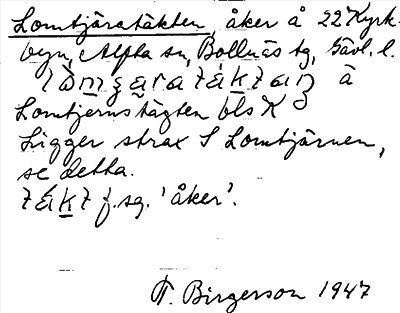 Lomtjäratäkten, åker å 22 Kyrk-
byn, Alfta sn, Bollnäs tg, Gävl. l.
å
Lomtjernstägten bls K
Ligger strax S Lomtjärnen,
se detta.
f. sg. 'åker'.
T. Birgerson 1947